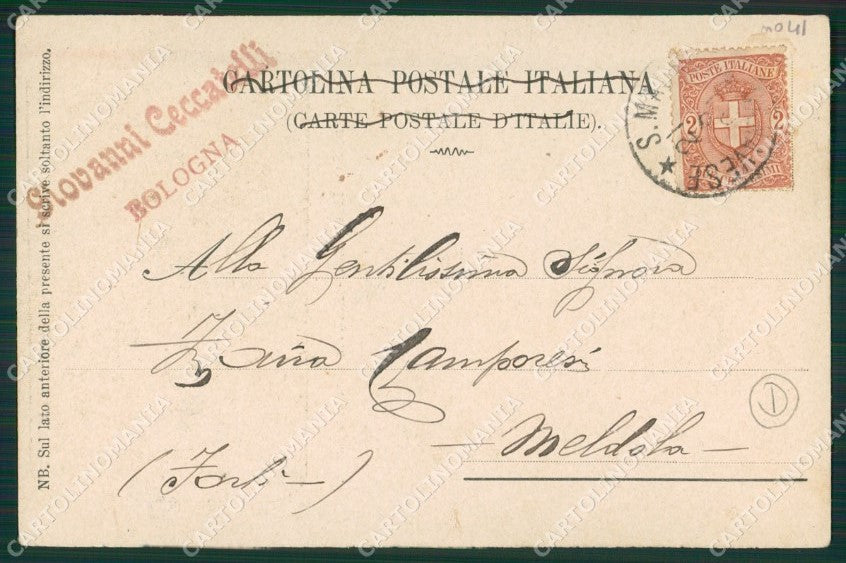 CARTOLINA POSTALE ITALIANA
(CARTE POSTALE D'ITALIE).
Giovanni Ceccarelli
BOLOGNA
POSTE ITALIANE
2 2
S. MA
VESE
Alla Gentilissima Signora
Camporesi
— Meldola —
(Forlì —)
NB. Sul lato anteriore della presente si scrive soltanto l'indirizzo.
CARTOLINOMANIA